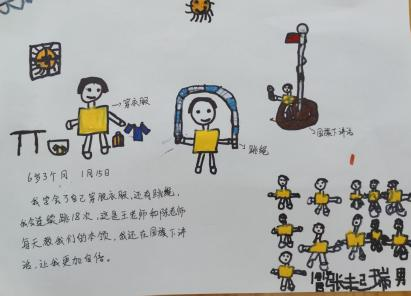 穿衣服
跳绳
国旗下讲话
6岁3个月 1月15日
我学会了自己穿脱衣服,还有跳绳,
我会连续跳18次,这是王老师和陈老师
每天教我们的本领,我还在国旗下讲
话,让我更加自信。
瑞 男